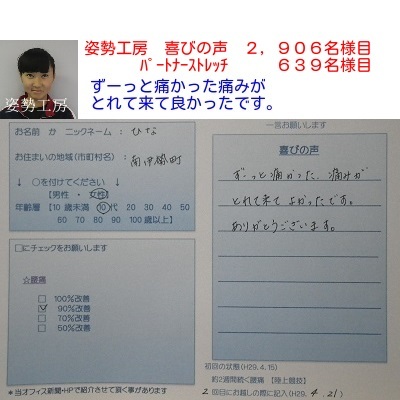 姿勢工房　喜びの声　２，９０６名様目
ﾊﾟｰﾄﾅｰｽﾄﾚｯﾁ　６３９名様目
ずーっと痛かった痛みが
とれて来て良かったです。
姿勢工房
お名前 か ニックネーム： ひな
お住まいの地域(市町村名)：
↓ ○を付けてください ↓
【男性 ・ 女性】
年齢層 【10歳未満 10代 20 30 40 50
60 70 80 90 100歳以上】
□にチェックをお願いします
☆腰痛
□ 100%改善
☑ 90%改善
□ 70%改善
□ 50%改善
＊当オフィス新聞・HPで紹介させて頂く事があります
一言お願いします
喜びの声
ずーっと痛かった、痛みが
とれて来て よかったです。
ありがとうございます。
初回の状態(H29.4.15)
約2週間続く腰痛 【陸上競技】
2回目にお越しの際に記入(H29. 4. 21)